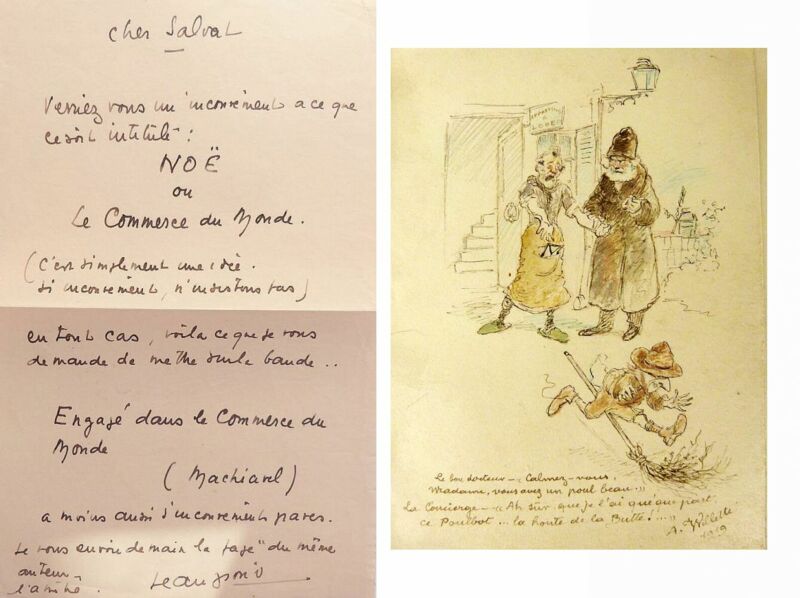 cher Salvat
Verriez vous un inconvénient a ce que
ce soit intitulé :
NOË
ou
Le Commerce du Monde.
(C'est simplement une idée.
si inconvénient, n'insistons pas)
en tout cas, voila ce que je vous
demande de mettre sur la bande ..
Engagé dans le Commerce du
Monde
(Machiavel)
a moins aussi d'inconvénients graves.
Je vous envoie demain la page "du même
auteur".
l'amitié. Jean Giono
Le bon docteur — « Calmez-vous,
Madame, vous avez un poul beau...
La Concierge — « Ah sur que je l'ai qué'qu part
ce Poulbot ... la honte de la Butte! »
A. Willette
1919